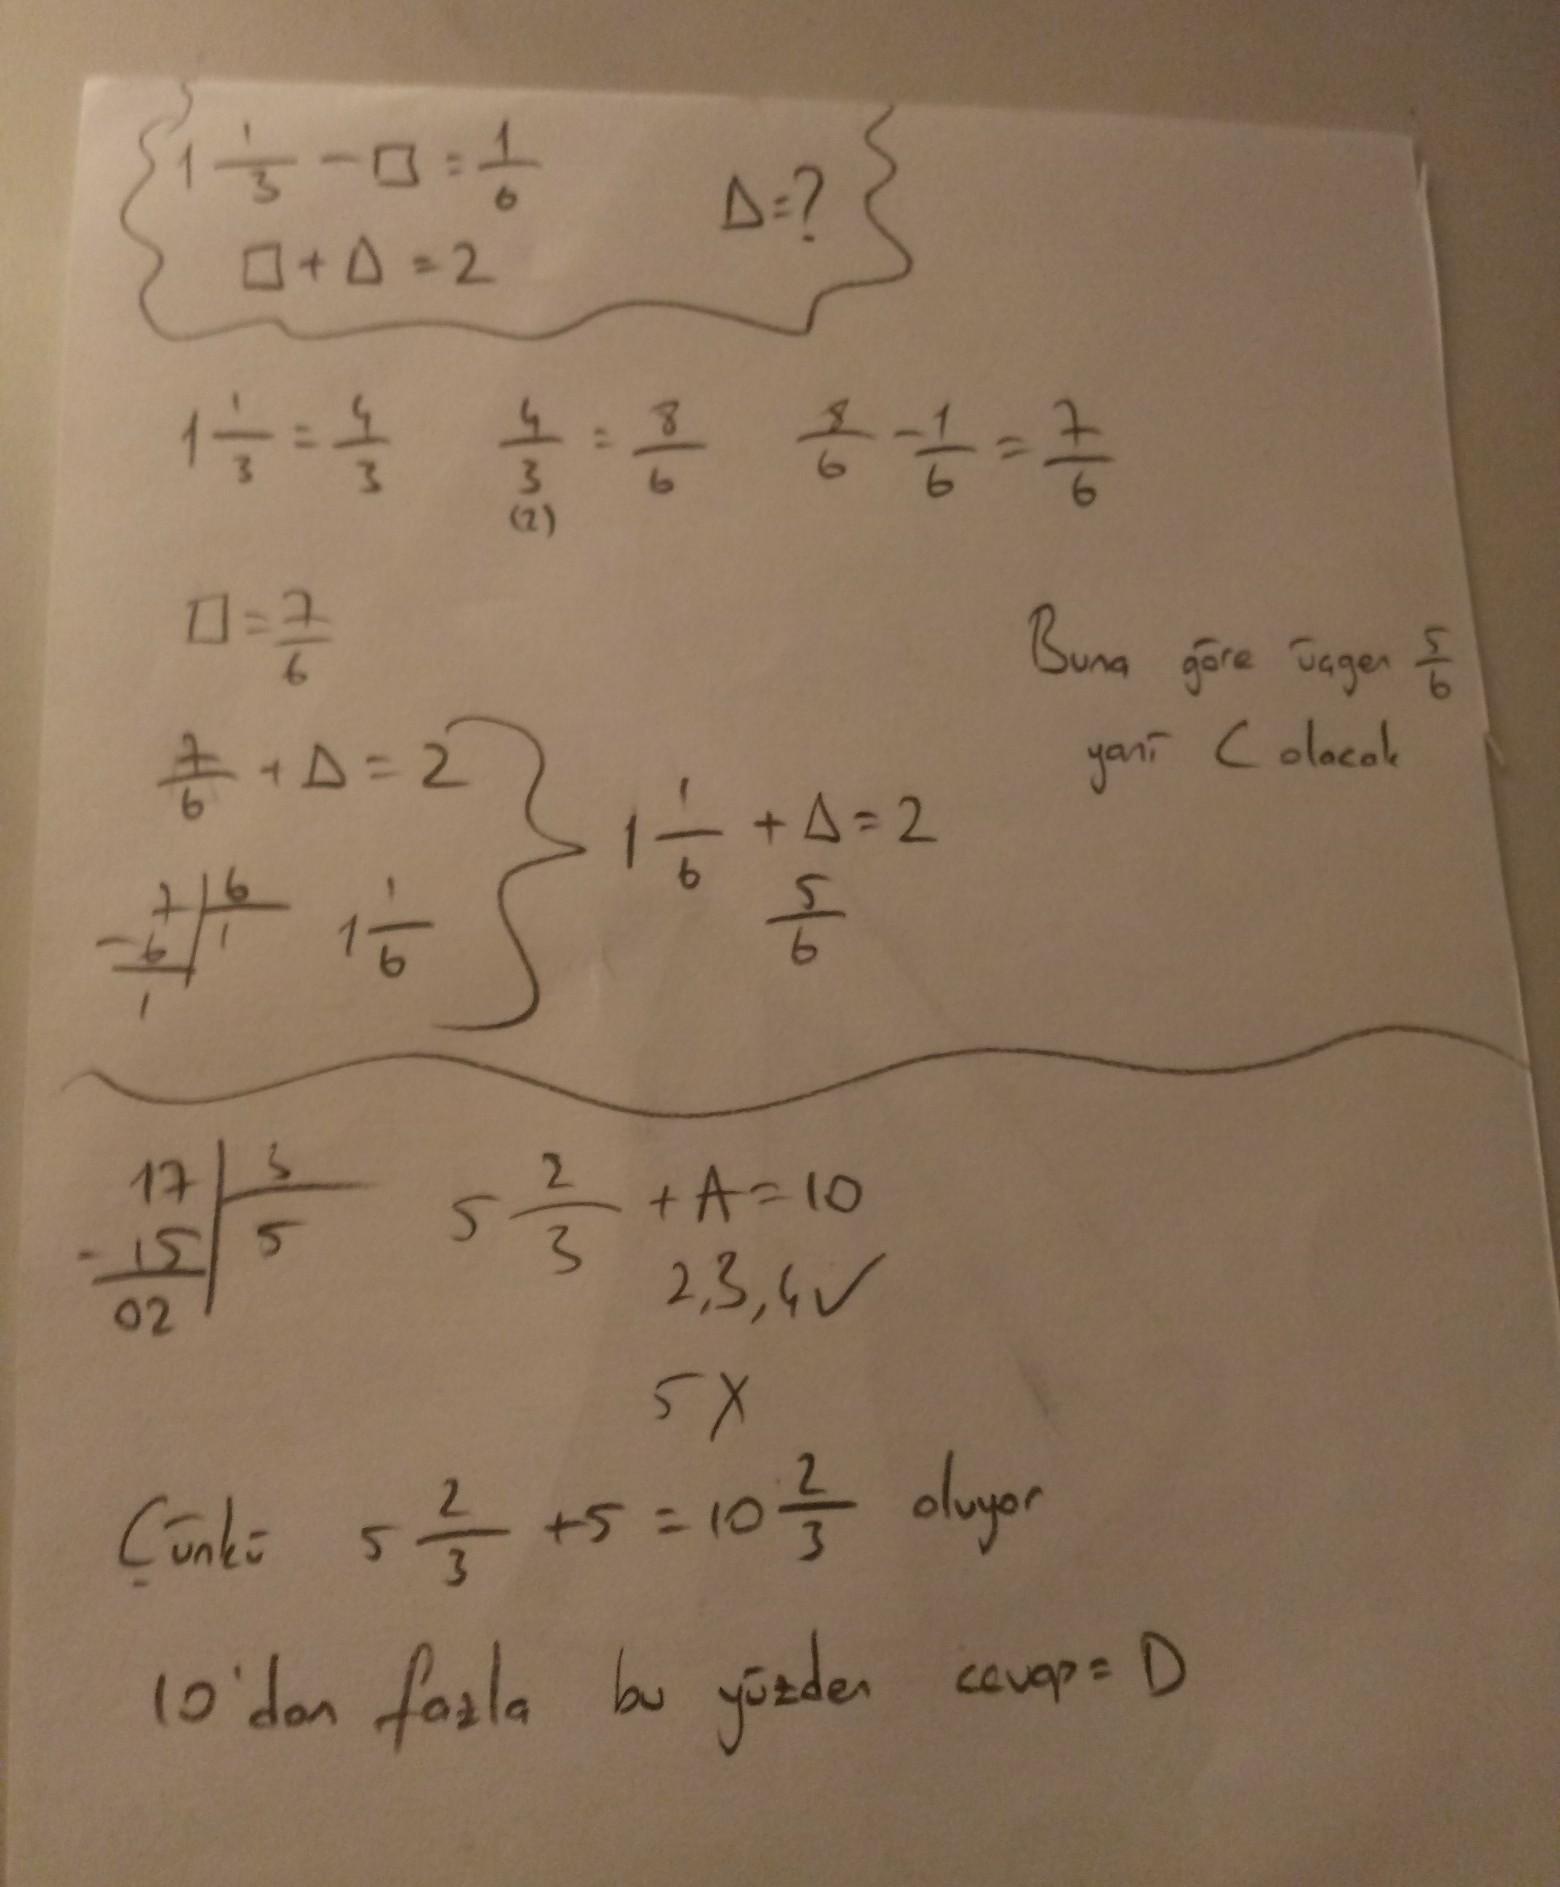 1 1/3 - □ = 1/6
□ + Δ = 2
Δ = ?
1 1/3 = 4/3   4/3 = 8/6   8/6 - 1/6 = 7/6
(2)
□ = 7/6
Buna göre üçgen 5/6
yani C olacak
7/6 + Δ = 2
7 | 6
- 6 | 1
1
1 1/6
1 1/6 + Δ = 2
5/6
17 | 3
- 15 | 5
02
5 2/3 + A = 10
2,3,4 ✓
5 X
Çünkü 5 2/3 + 5 = 10 2/3 oluyor
10'dan fazla bu yüzden cevap = D